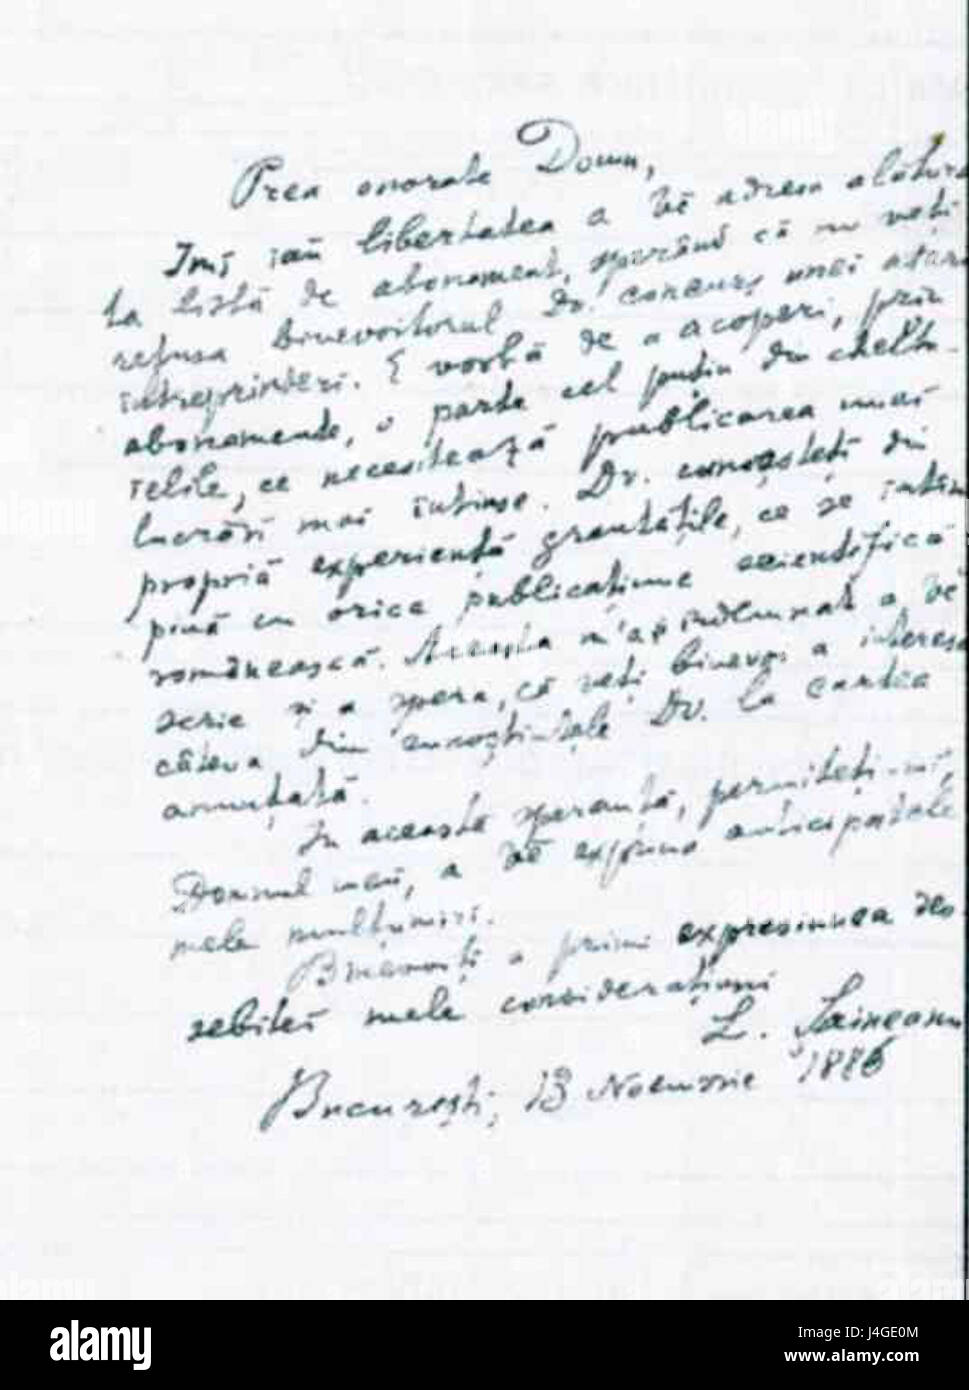 Prea onorate Domn,
Îmĭ iaŭ libertatea a Vĕ adresa alătura
ta listă de abonament, sperând că nu vețĭ
refusa binevoitorul Dv. concurs unei atare
întreprinderĭ. E vorbă de a acoperi, prin
abonamente, o parte cel puțin din cheltu-
ielile, ce necesitează publicarea uneĭ
lucrărĭ mai întinse. Dv. conoașteți din
propriă experiență greutățile, ce se întîm
pină cu orice publicațiune scientifică
românească. Aceasta m'a îndemnat a Vĕ
scrie și a spera, că veți binevoi a interesa
câteva din cunoștințele Dv. la cartea
anunțată.
În aceastĕ speranță, permiteți-mĭ,
Domnul meŭ, a Vĕ expune anticipatele
mele mulțumirĭ.
Binevoiți a primi expresiunea deo
sebiteĭ mele considerațiuni
L. Șaineanu
București, 13 Noemvrie 1886
alamy
Image ID: J4GE0M
www.alamy.com